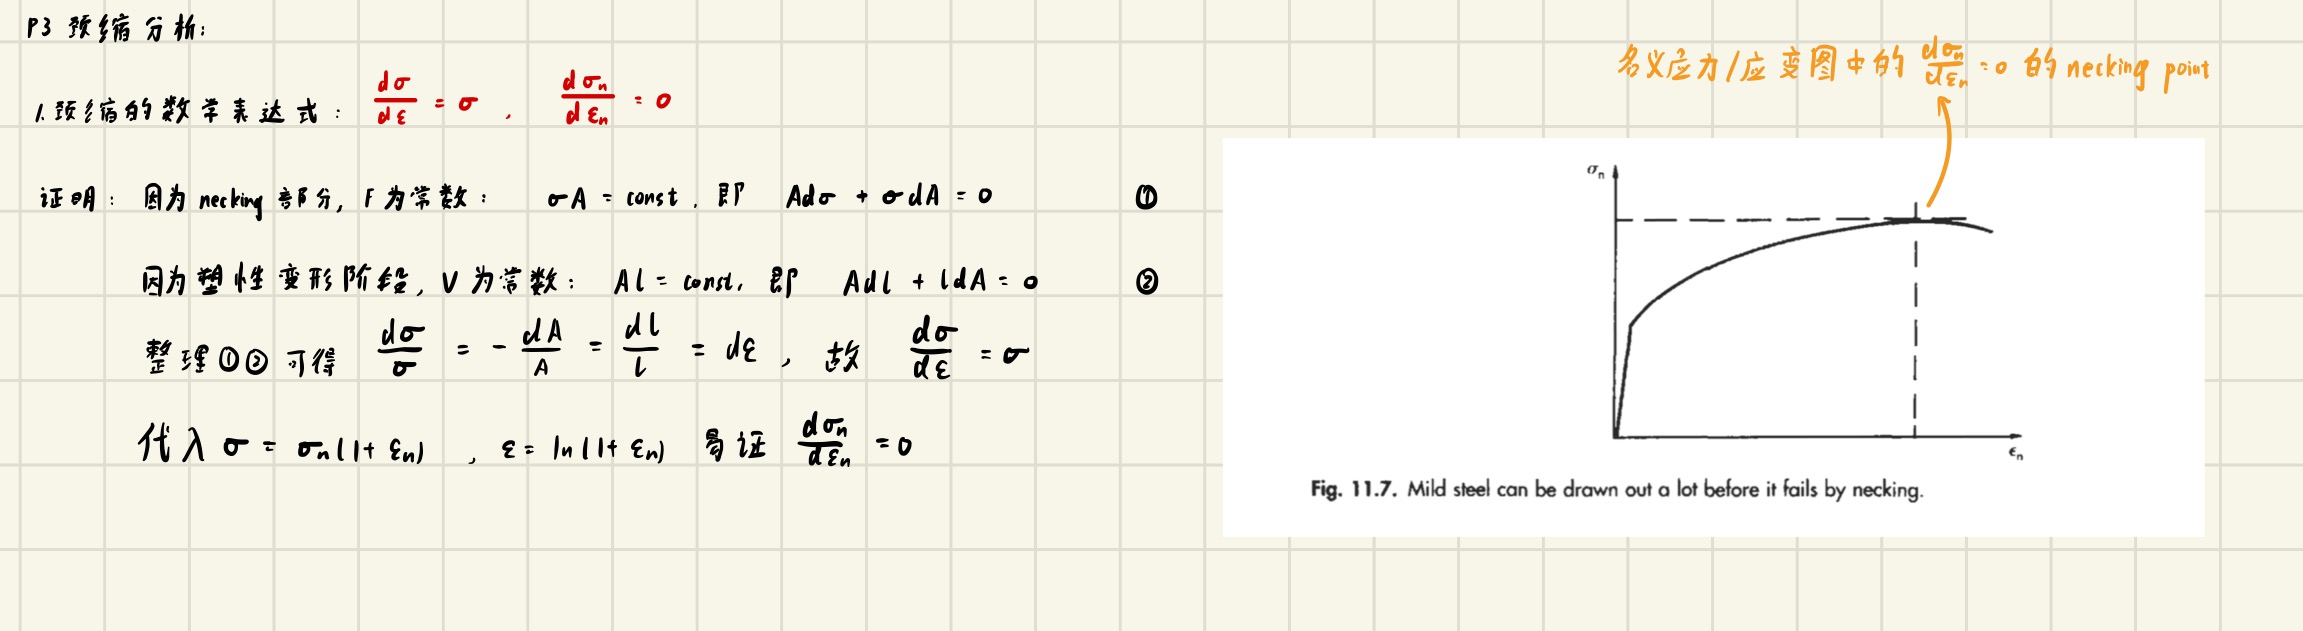 P3 颈缩分析:
1. 颈缩的数学表达式: dσ/dε = σ , dσn/dεn = 0
证明: 因为 necking 部分, F 为常数: σA = const, 即 Adσ + σdA = 0 ①
因为塑性变形阶段, V 为常数: Al = const, 即 Adl + ldA = 0 ②
整理①②可得 dσ/σ = - dA/A = dl/l = dε , 故 dσ/dε = σ
代入 σ = σn(1+εn) , ε = ln(1+εn) 易证 dσn/dεn = 0
名义应力/应变图中的 dσn/dεn = 0 的 necking point
σn
εn
Fig. 11.7. Mild steel can be drawn out a lot before it fails by necking.